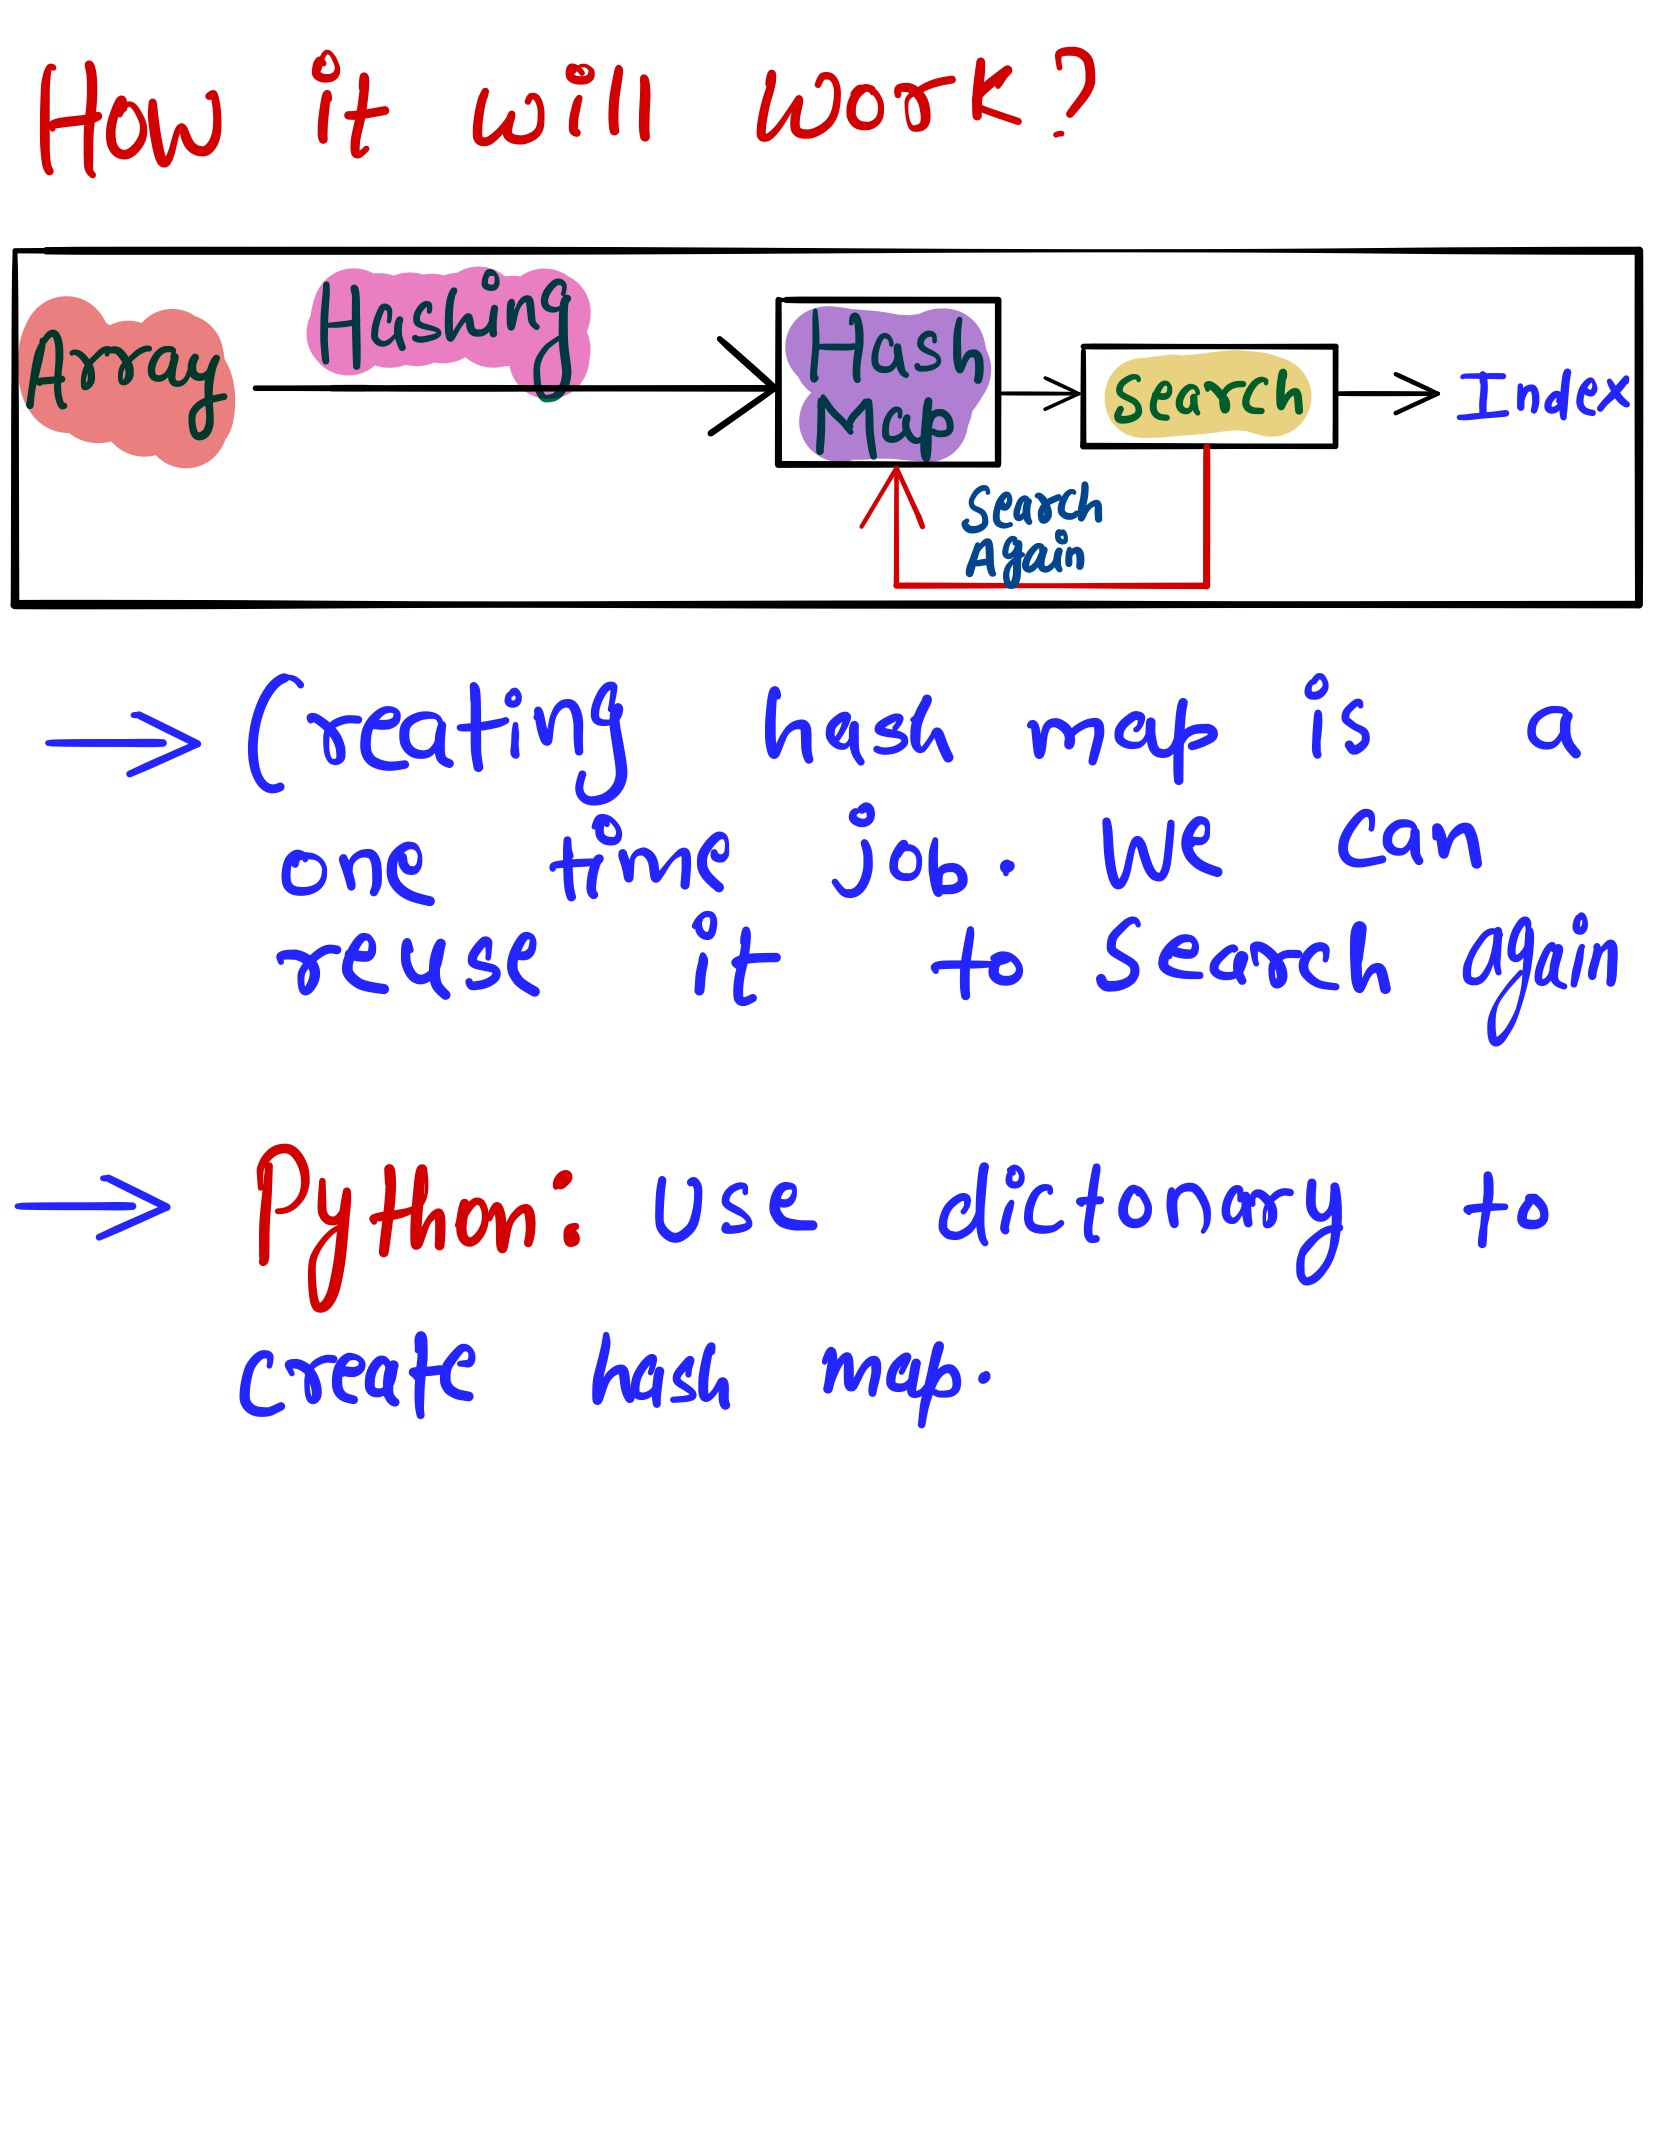 How it will work?
Array Hashing Hash Map Search Index
Search Again
Creating hash map is a
one time job. We can
reuse it to search again
Python: Use dictonary to
create hash map.